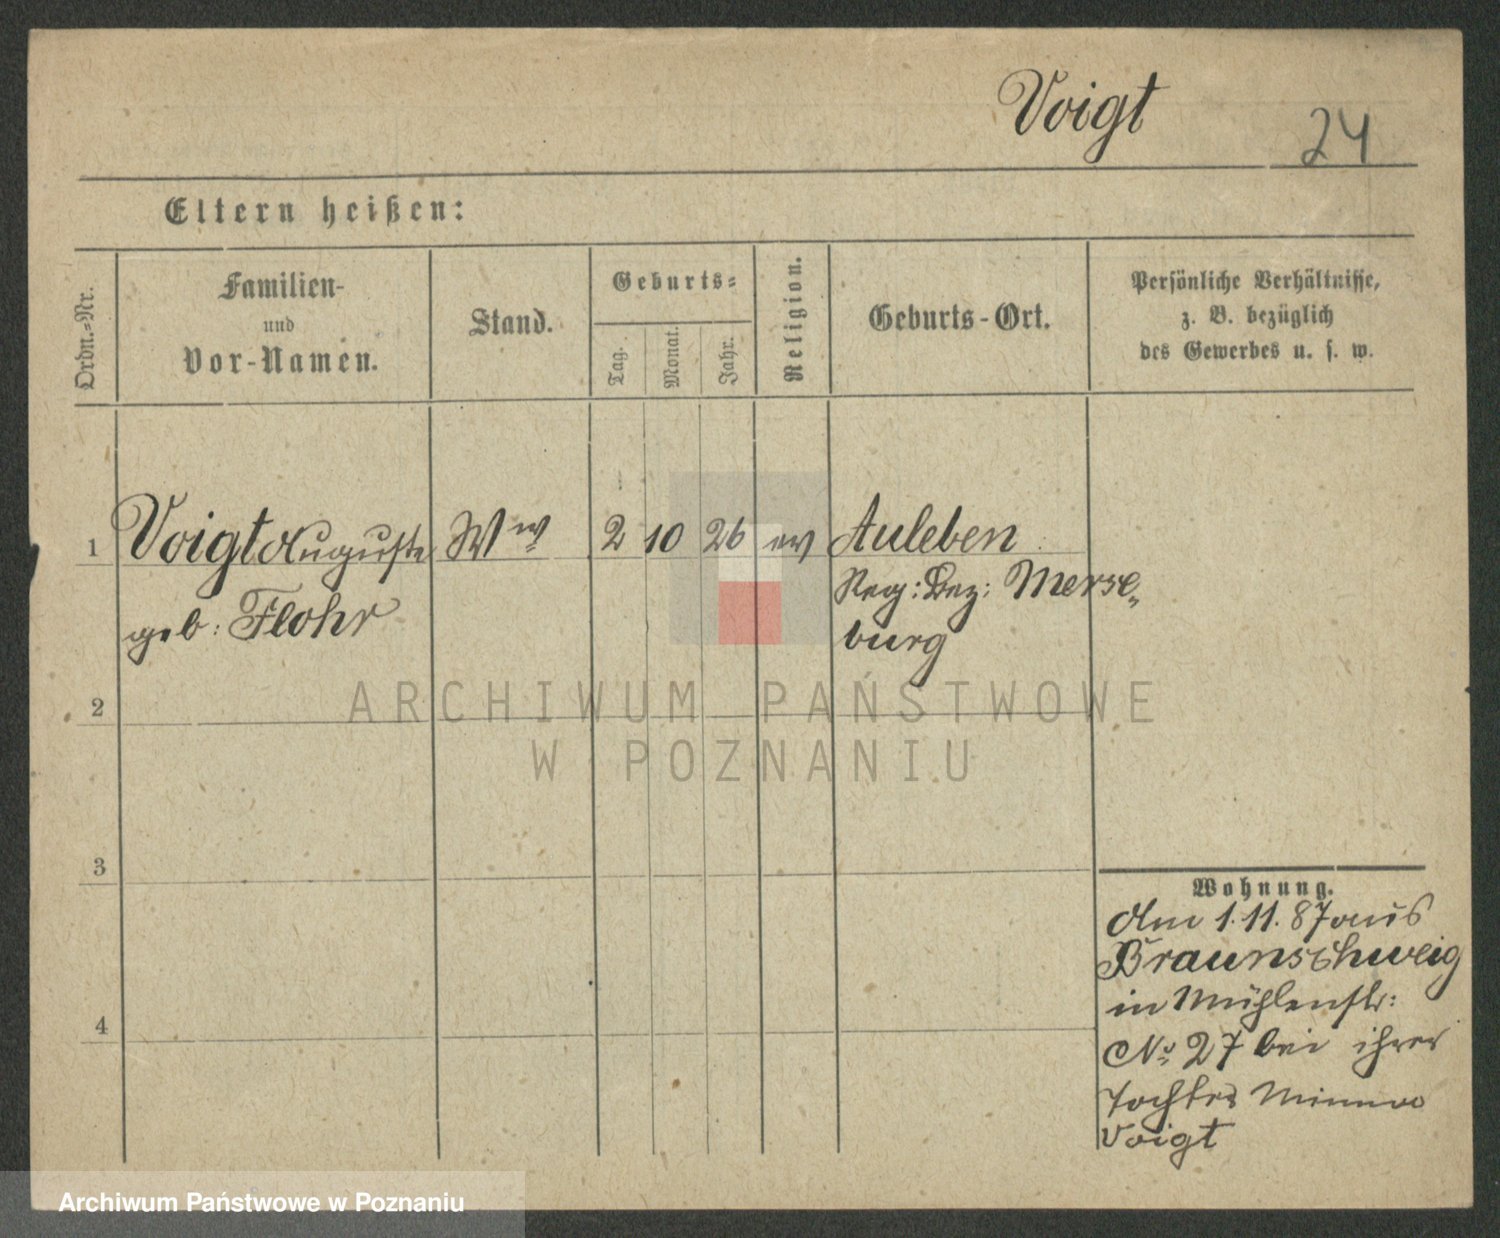 Voigt 24
Eltern heißen:
Ordn.-Nr. Familien- und Vor-Namen. Stand. Geburts- Tag. Monat. Jahr. Religion. Geburts-Ort. Persönliche Verhältnisse, z. B. bezüglich des Gewerbes u. s. w.
1 Voigt Auguste Ww 2 10 26 ev Auleben
geb: Flohr Reg: Bez: Merse-
burg
2
3
4
Wohnung.
Am 1. 11. 87 aus
Braunschweig
in Mühlenstr:
No 27 bei ihrer
Tochter Minna
Voigt
ARCHIWUM PAŃSTWOWE
W POZNANIU
Archiwum Państwowe w Poznaniu